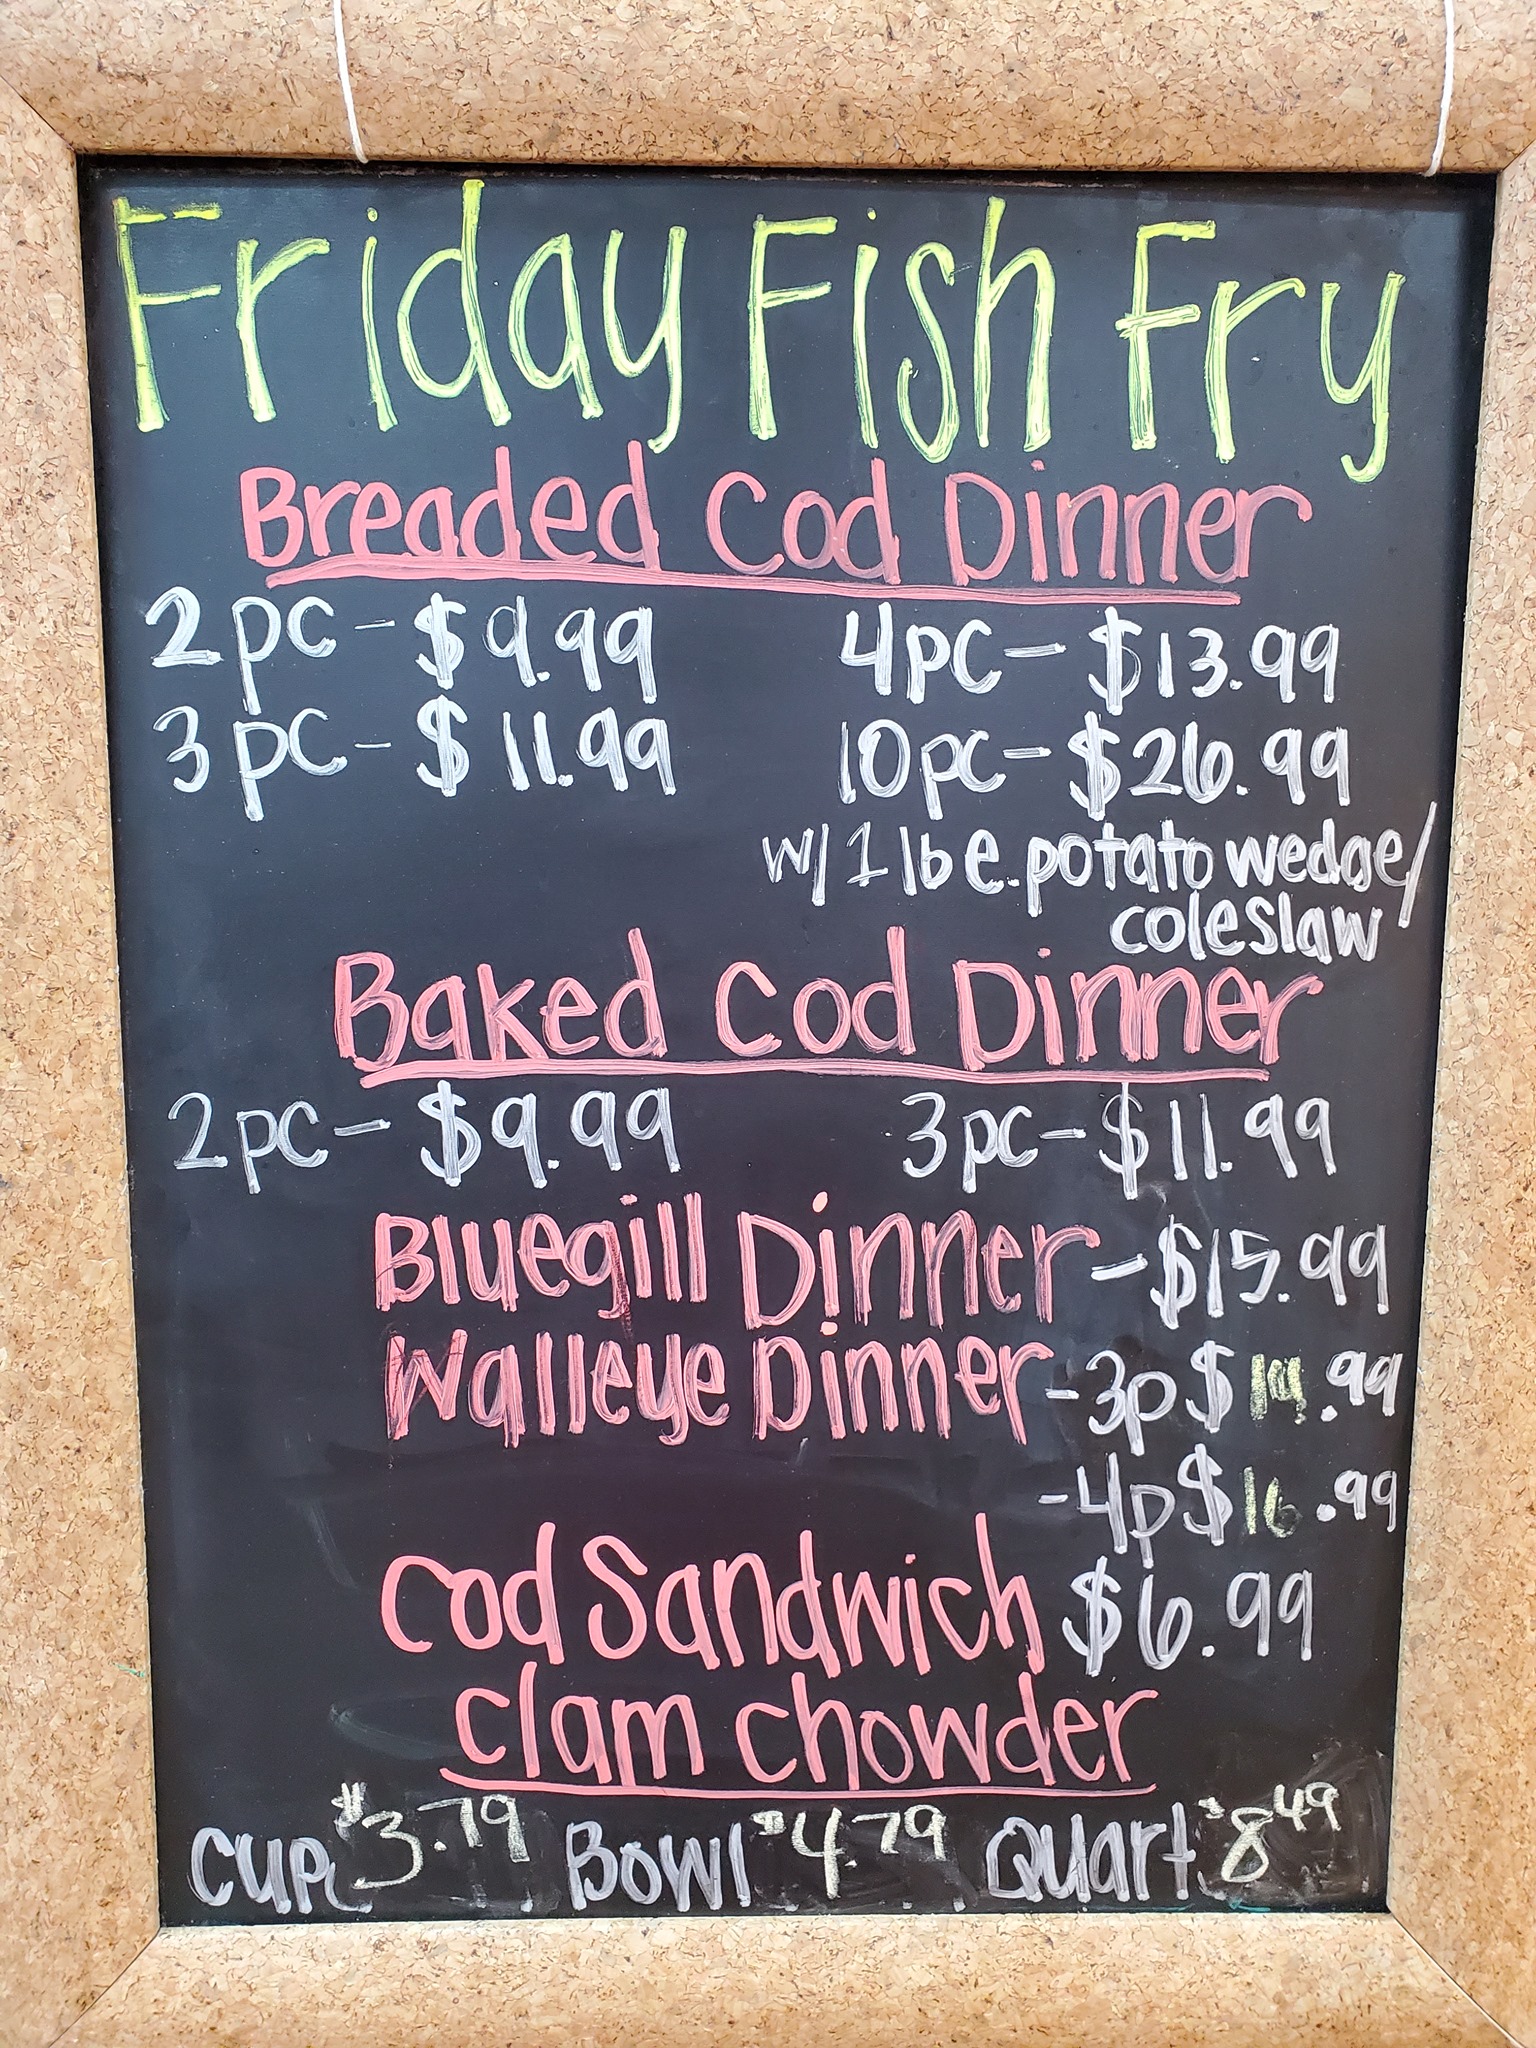 Friday Fish Fry
Breaded Cod Dinner
2pc - $9.99 4pc - $13.99
3pc - $11.99 10pc - $26.99
w/ 1 lb e. potato wedge/
coleslaw
Baked Cod Dinner
2pc - $9.99 3pc - $11.99
Bluegill Dinner - $15.99
Walleye Dinner - 3p $14.99
- 4p $16.99
Cod Sandwich $6.99
Clam Chowder
Cup $3.79 Bowl $4.79 Quart $8.49